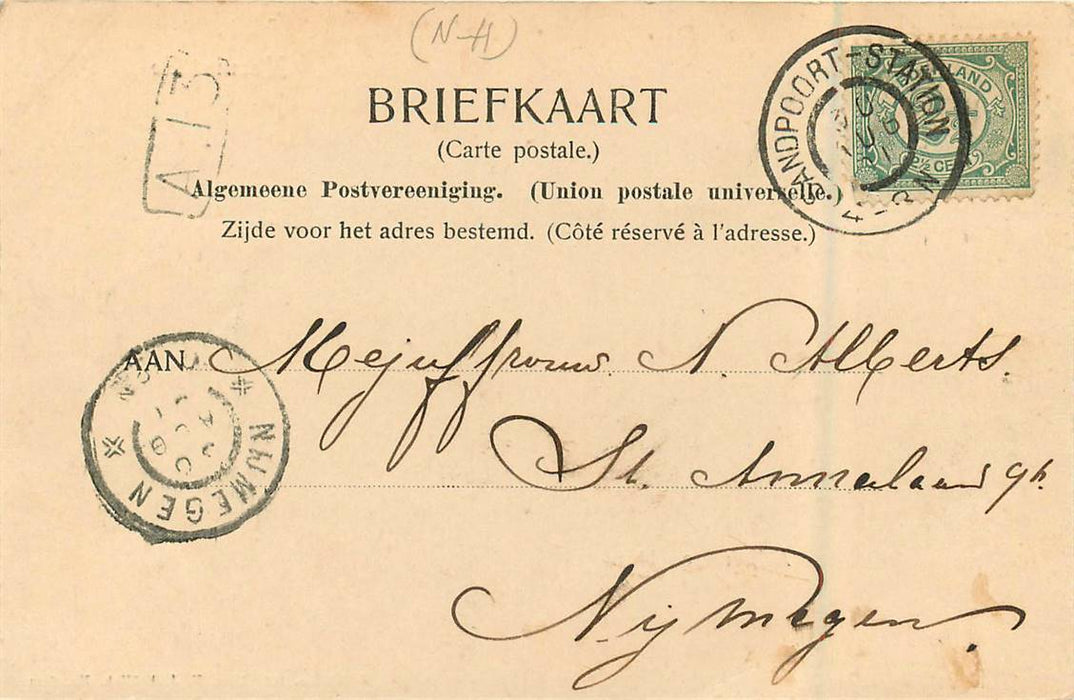 (N-H)
A.13
BRIEFKAART
(Carte postale.)
Algemeene Postvereeniging. (Union postale universelle.)
Zijde voor het adres bestemd. (Côté réservé à l'adresse.)
SANDPOORT-STATION
4-8N
LAND
2½ CENT
AAN Mejuffrouw N. Alberts.
St. Annalaand 9h.
Nijmegen
NIJMEGEN
AUG